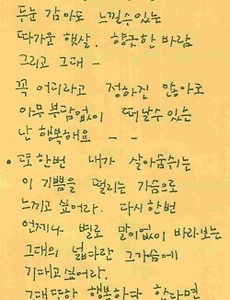 두눈 감아도 느낄수있는
따가운 햇살. 향긋한 바람
그리고 그대 –
꼭 어디라고 정하진 않아도
아무부담없이 떠날수있는
난 행복해요 – –
• 또한번 내가 살아숨쉬는
이 기쁨을 떨리는 가슴으로
느끼고 싶어라. 다시한번
언제나 별로 말이없이 바라보는
그대의 넓다란 그가슴에
기대고싶어라.
그대 행복하다 한다면